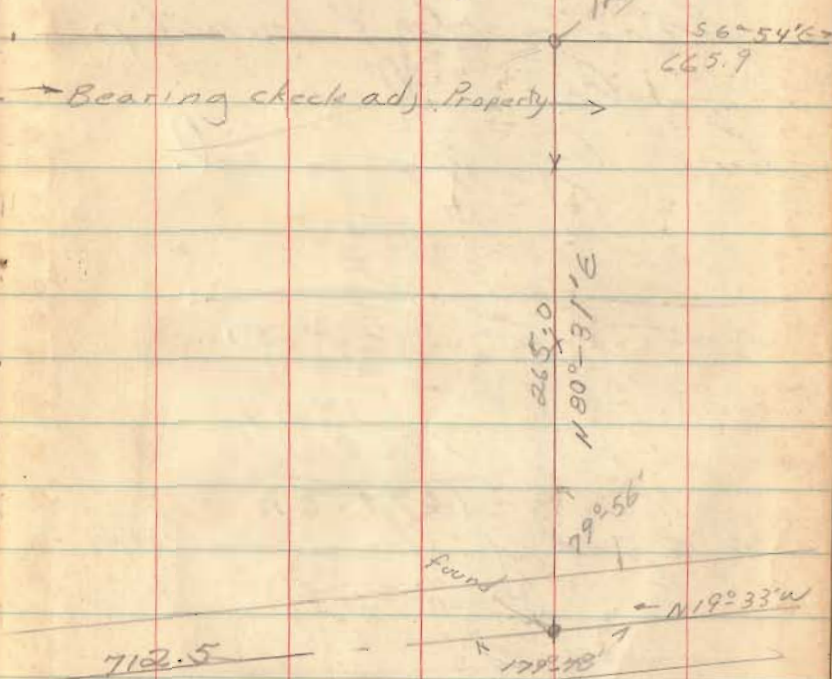 S 6°-54'E
665.9
Bearing check adj. Property
265.0
N 80°-31'E
79°-56'
found
N19°-33'W
712.5